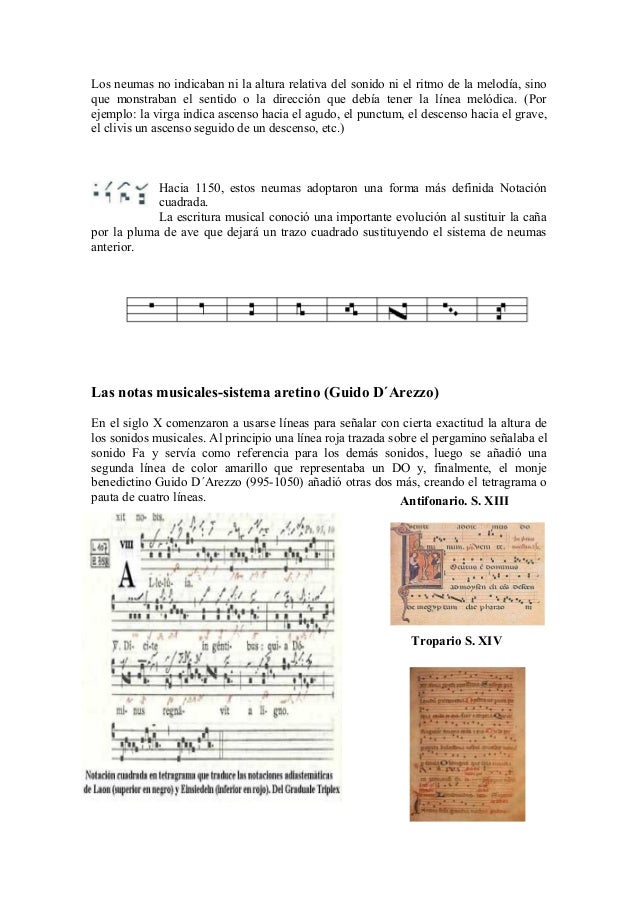 Los neumas no indicaban ni la altura relativa del sonido ni el ritmo de la melodía, sino
que monstraban el sentido o la dirección que debía tener la línea melódica. (Por
ejemplo: la virga indica ascenso hacia el agudo, el punctum, el descenso hacia el grave,
el clivis un ascenso seguido de un descenso, etc.)
Hacia 1150, estos neumas adoptaron una forma más definida Notación
cuadrada.
La escritura musical conoció una importante evolución al sustituir la caña
por la pluma de ave que dejará un trazo cuadrado sustituyendo el sistema de neumas
anterior.
Las notas musicales-sistema aretino (Guido D´Arezzo)
En el siglo X comenzaron a usarse líneas para señalar con cierta exactitud la altura de
los sonidos musicales. Al principio una línea roja trazada sobre el pergamino señalaba el
sonido Fa y servía como referencia para los demás sonidos, luego se añadió una
segunda línea de color amarillo que representaba un DO y, finalmente, el monje
benedictino Guido D´Arezzo (995-1050) añadió otras dos más, creando el tetragrama o
pauta de cuatro líneas.
Antifonario. S. XIII
xit no- bis.
VIII
A
L-le-lú- ia.
V. Dí- ci-te in génti- bus : qui-a Dó-
mi- nus regná- vit a li-gno.
Notación cuadrada en tetragrama que traduce las notaciones adiastemáticas
de Laon (superior en negro) y Einsiedeln (inferior en rojo). Del Graduale Triplex
Tropario S. XIV